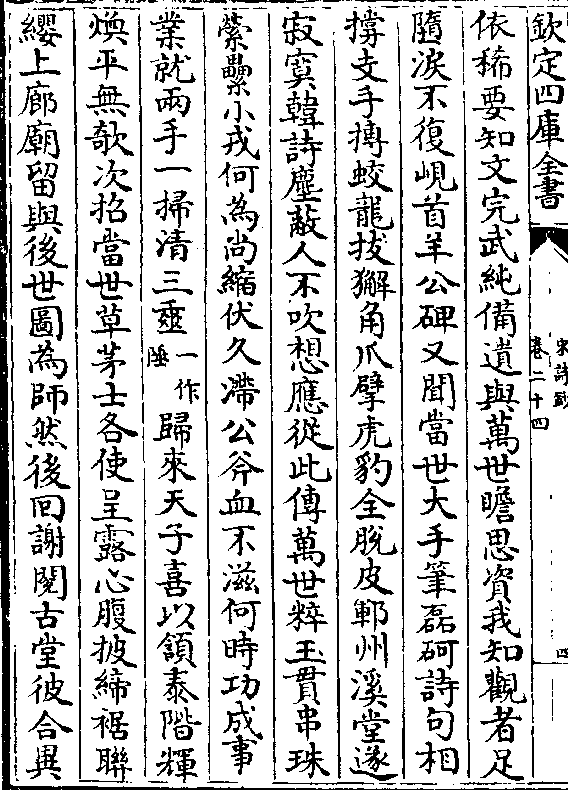 欽定四庫全書
宋詩鈔
卷二十四
四
依稀要知文完武純備遺與萬世瞻思資我知觀者足
墮淚不復峴首羊公碑又聞當世大手筆磊砢詩句相
撐支手摶蛟龍拔獬角爪擘虎豹全脫皮鄆州溪堂遂
寂寞韓詩塵蔽人不吹想應從此傳萬世粹玉貫串珠
縈纍小戎何為尚縮伏久滯公斧血不滋何時功成事
業就兩手一掃清三靈一作陲歸來天子喜以頷泰階輝
煥平無欹次招當世草茅士各使呈露心腹披締裾聯
纓上廊廟留與後世圖為師然後回謝閱古堂彼合異